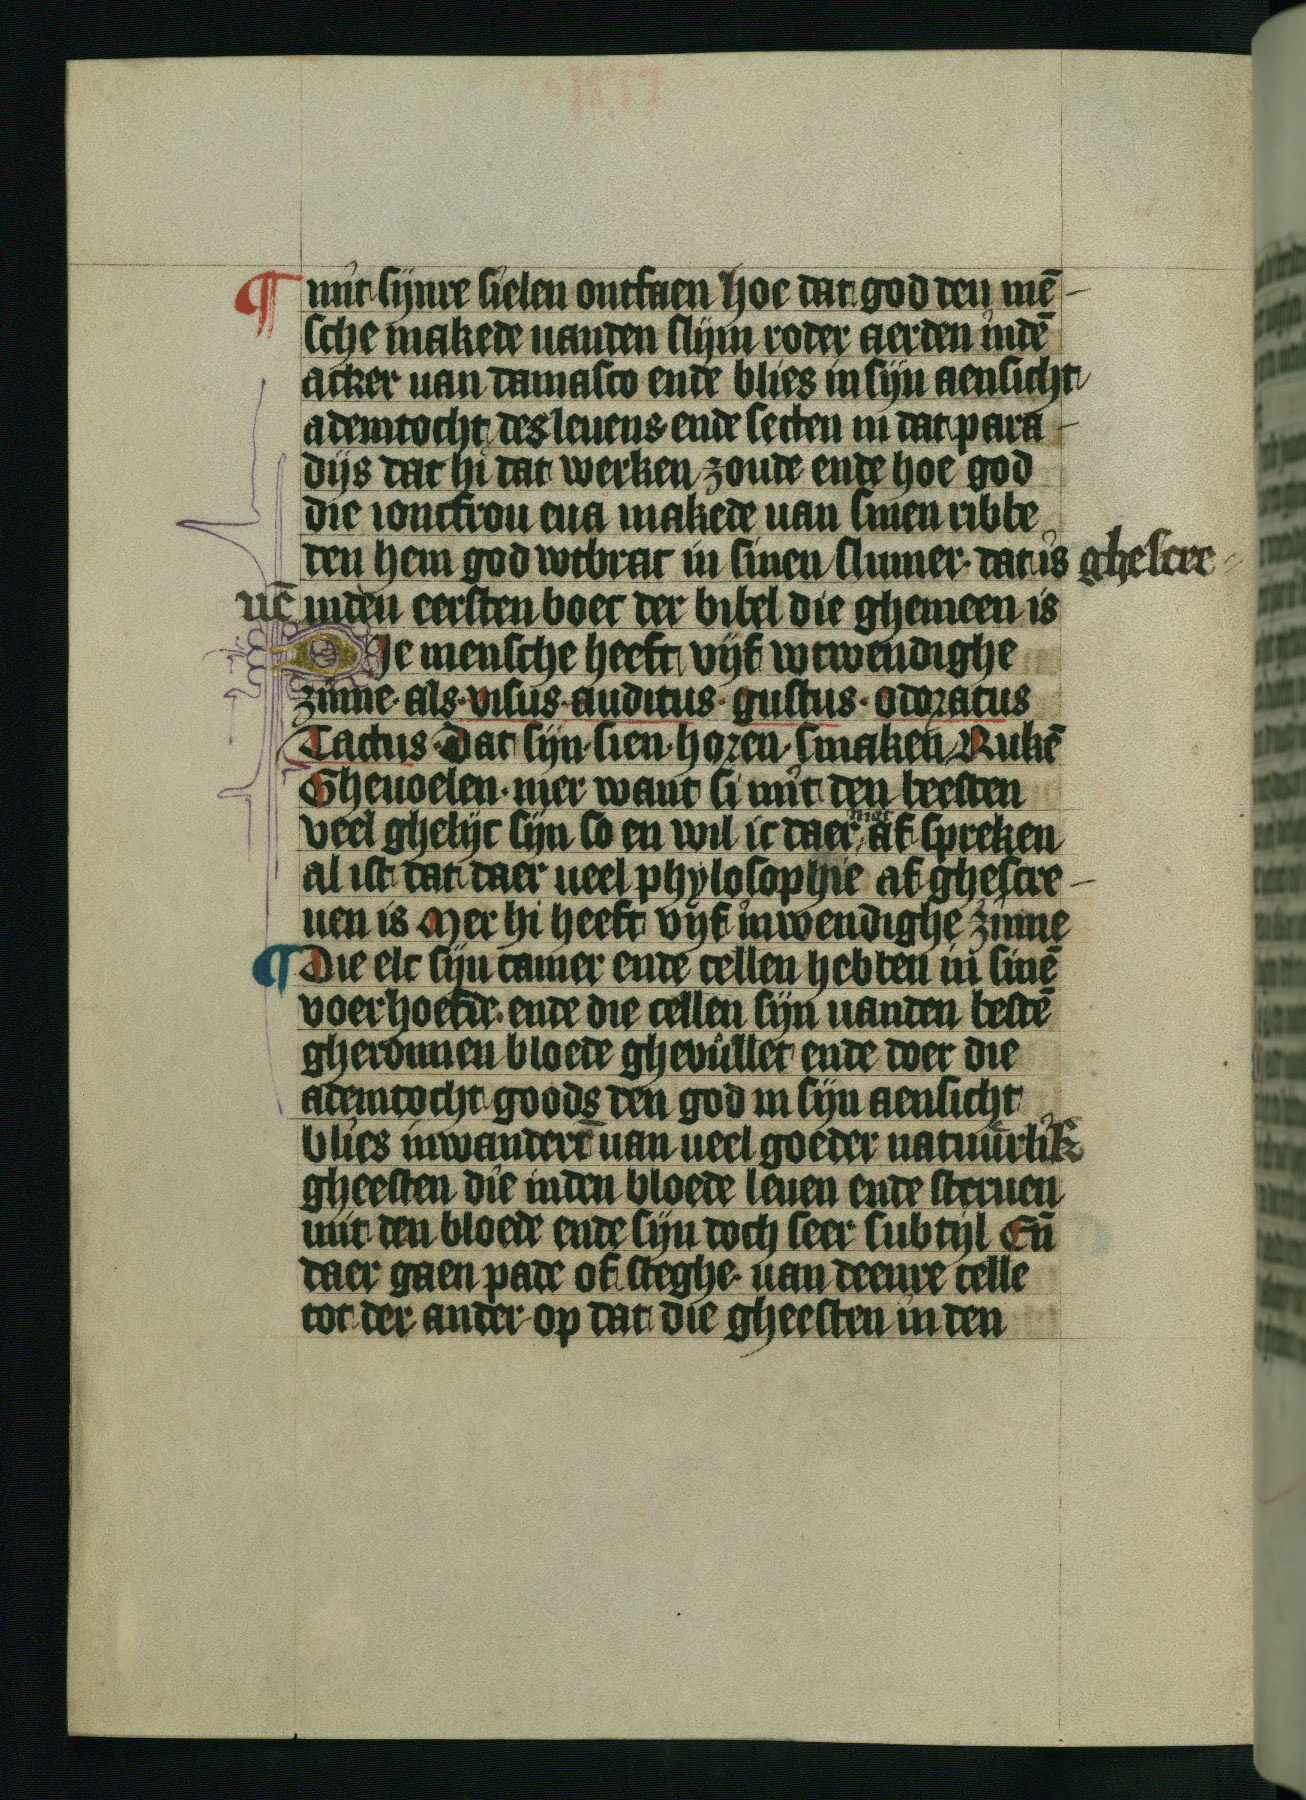 ¶ mit sijnre sielen ontfaen hoe dat god den mē-
sche makede uanden slijm roder aerden indē
acker uan damasco ende blies in sijn aensicht
ademtocht des leuens ende setten in dat para-
dijs dat hi dat werken zoude ende hoe god
die ioncfrou eua makede uan sinen ribbe
den hem god wtbrac in sinen slumer· dat is ghescre-
uē inden eersten boec der bibel die ghemeen is
De mensche heeft vijf wtwendighe
zinne· als· visus· auditus· gustus· odoratus
Tactus· Dat sijn· sien· horen· smaken Rukē
Gheuoelen· mer want si mit den beesten
veel ghelijc sijn so en wil ic daer niet af spreken
al ist dat daer ueel phylosophie af ghescre-
uen is Mer hi heeft vijf inwendighe zinne
¶ Die elc sijn camer ende cellen hebben in sinē
voerhoefde· ende die cellen sijn uanden bestē
gheronnen bloede gheuullet ende doer die
ademtocht goods den god in sijn aensicht
blies inwanderē uan ueel goeder natuurlik
gheesten die inden bloede leuen ende steruen
mit den bloede ende sijn doch seer subtijl Eñ
daer gaen pade of steghe· uan deenre celle
tot der ander op dat die gheesten in den